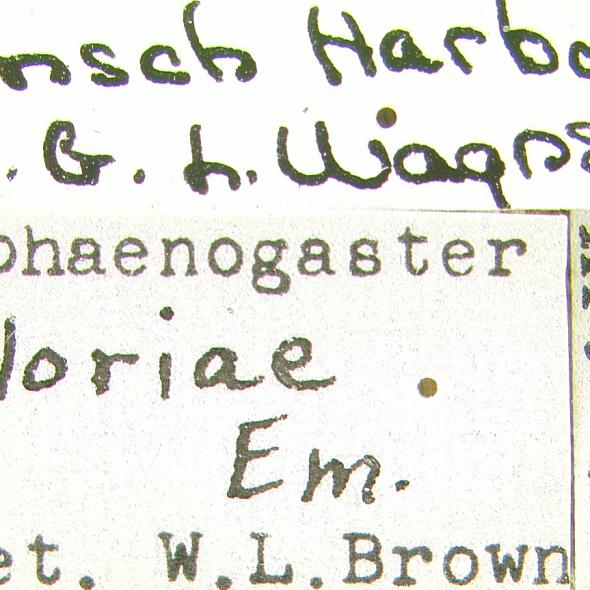 nsch Harbo
. G. L. Wagn
phaenogaster
loriae
Em.
et. W.L.Brown